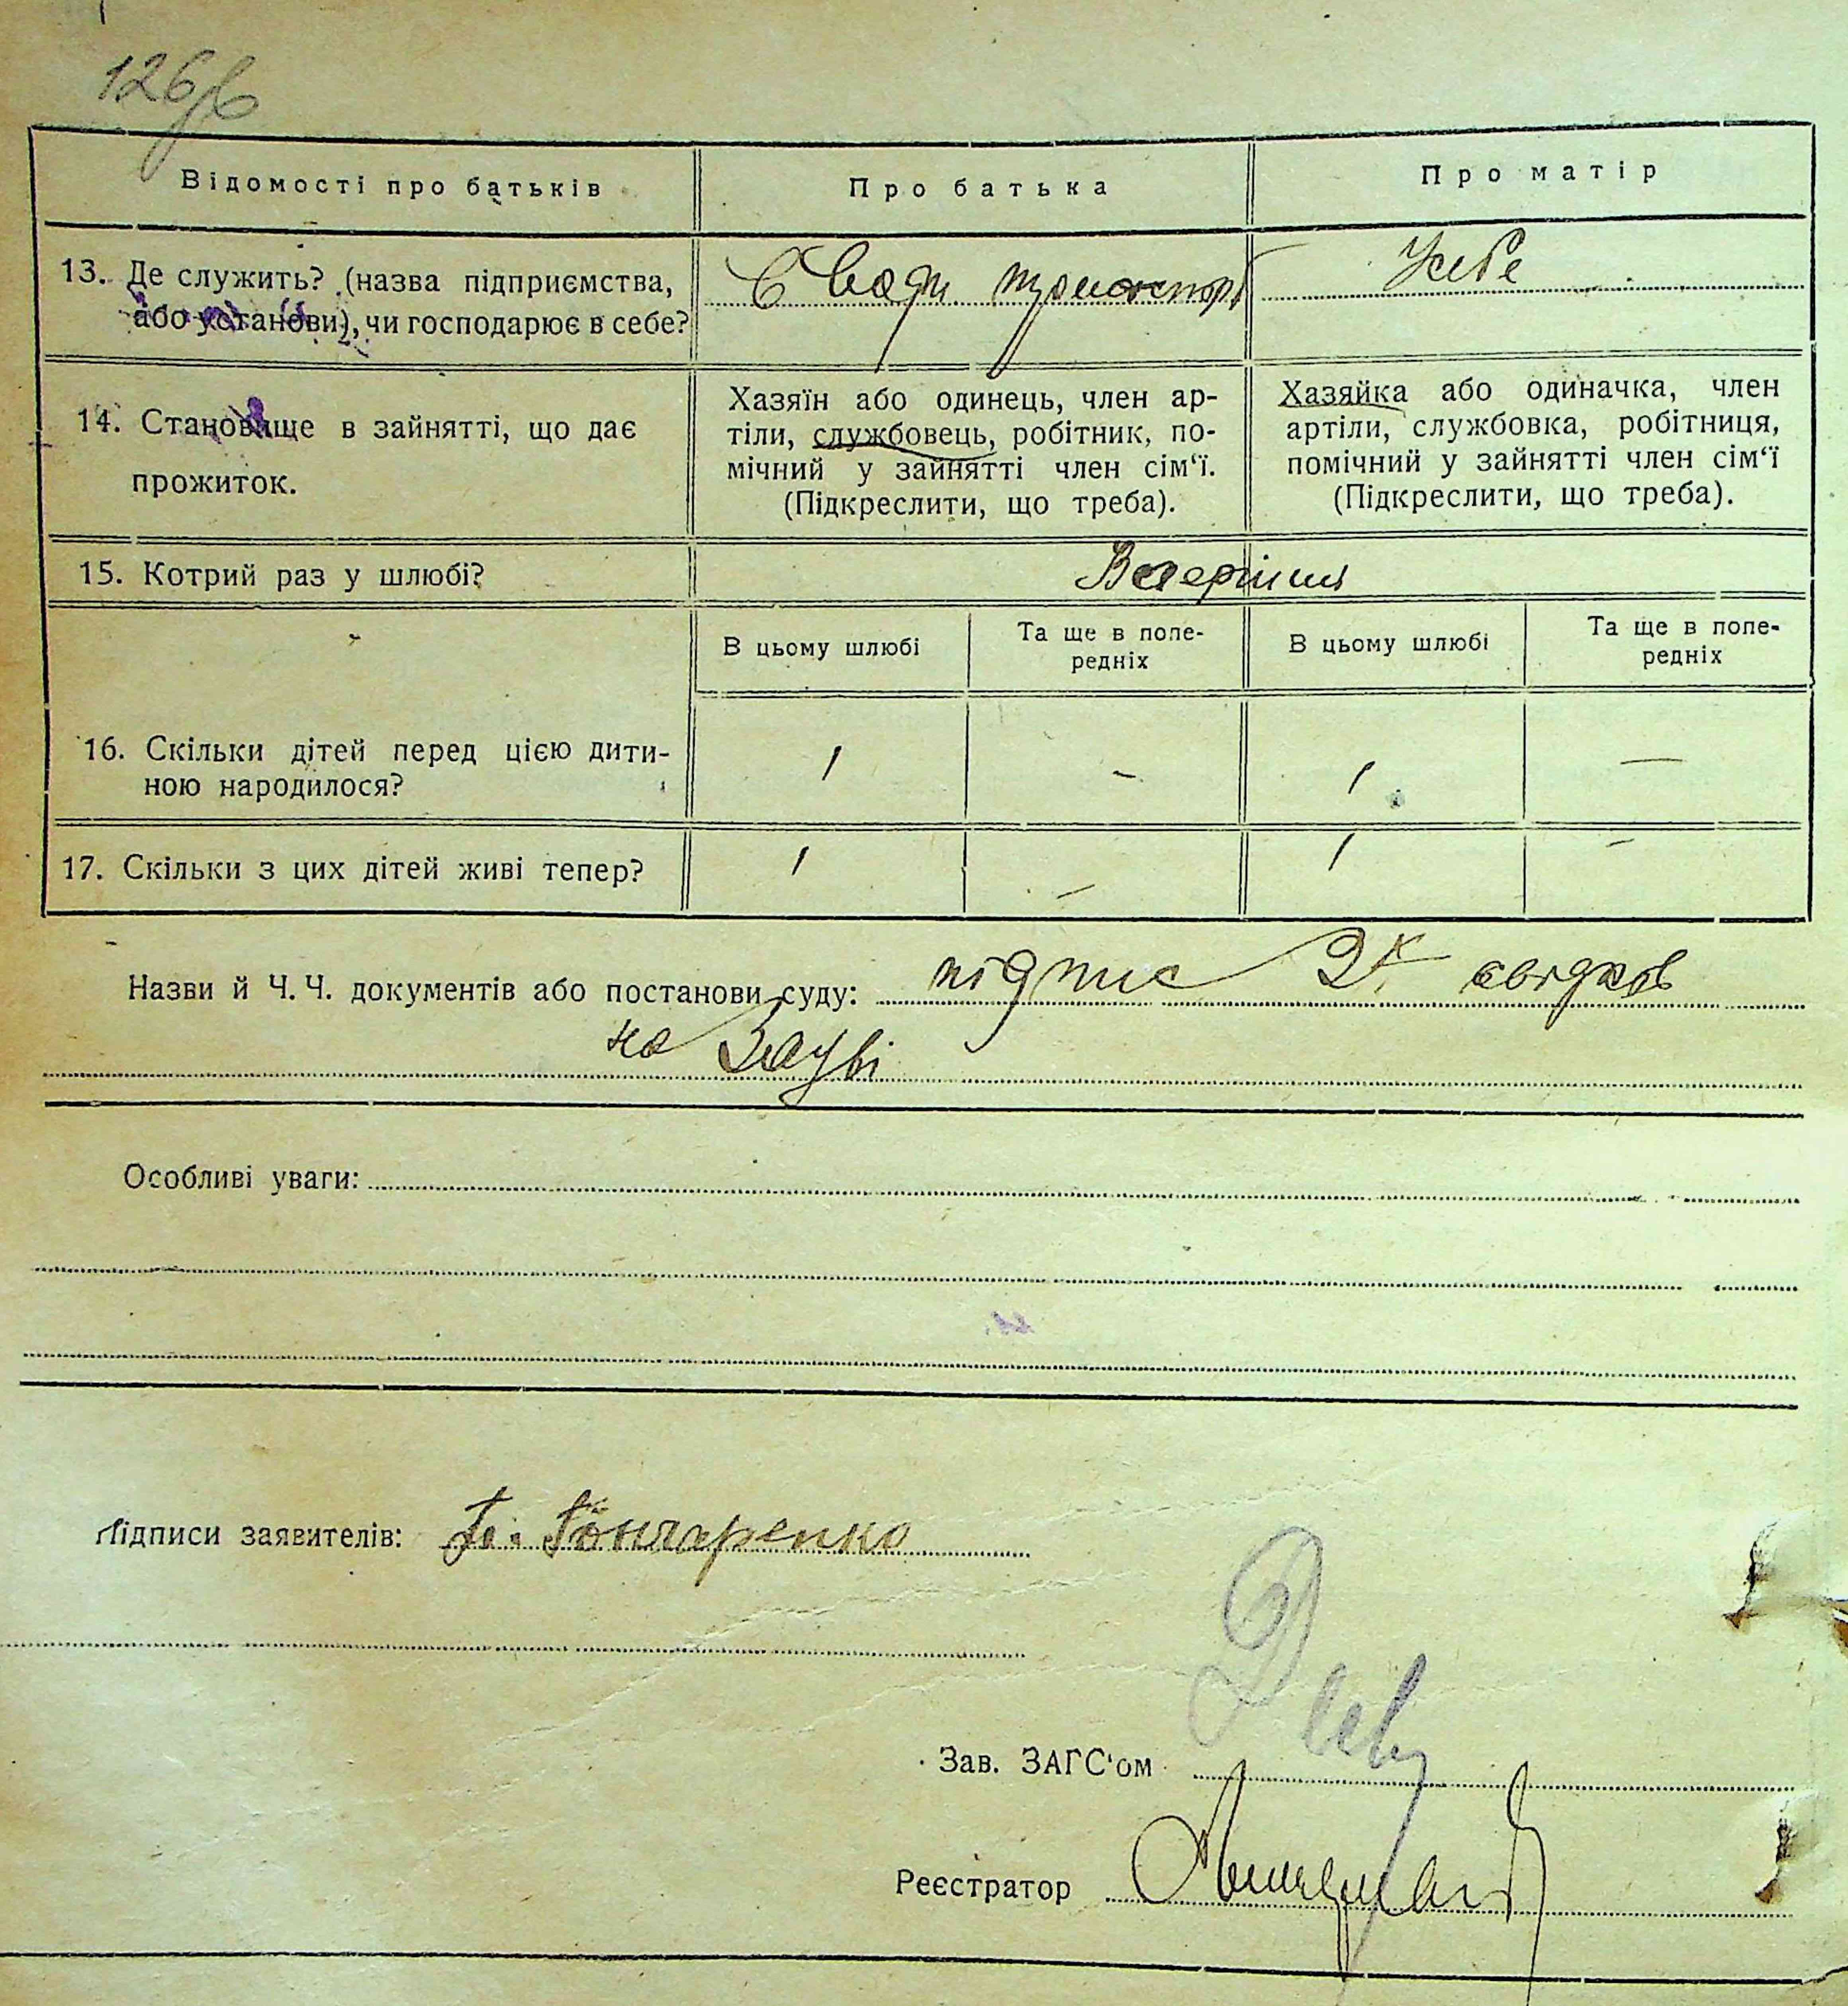 126/б
Відомості про батьків
Про батька
Про матір
13. Де служить? (назва підприємства,
або установи), чи господарює в себе?
14. Становище в зайнятті, що дає
прожиток.
Хазяїн або одинець, член ар-
тіли, службовець, робітник, по-
мічний у зайнятті член сім‘ї.
(Підкреслити, що треба).
Хазяйка або одиначка, член
артіли, службовка, робітниця,
помічний у зайнятті член сім‘ї
(Підкреслити, що треба).
15. Котрий раз у шлюбі?
В цьому шлюбі
Та ще в попе-
редніх
В цьому шлюбі
Та ще в попе-
редніх
16. Скільки дітей перед цією дити-
ною народилося?
1 – 1 —
17. Скільки з цих дітей живі тепер?
1 – 1 –
Назви й Ч. Ч. документів або постанови суду: підпис 2х свідків
на заяві
Особливі уваги:
Підписи заявителів: Гончаренко
Зав. ЗАГС‘ом
Реєстратор